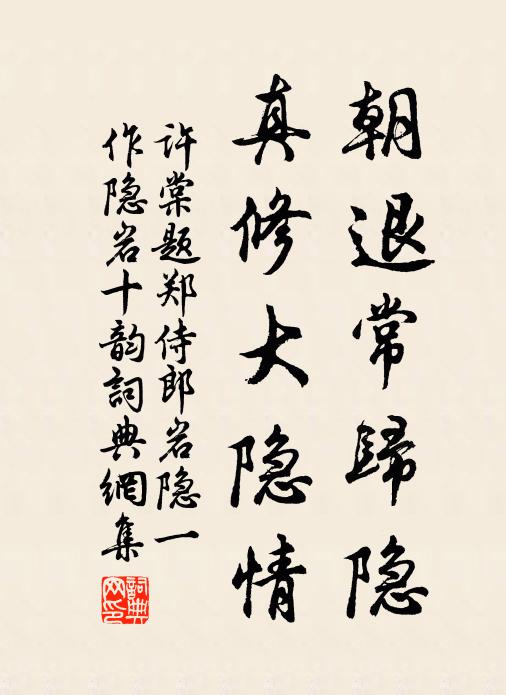 朝退常歸隐
真修大隐情
许棠题郑侍郎岩隐一
作隐岩十韵詞典網集
詞典
网印